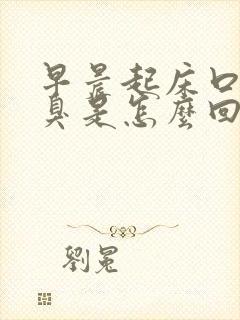 早晨起床口
臭是怎麼回
劉冕